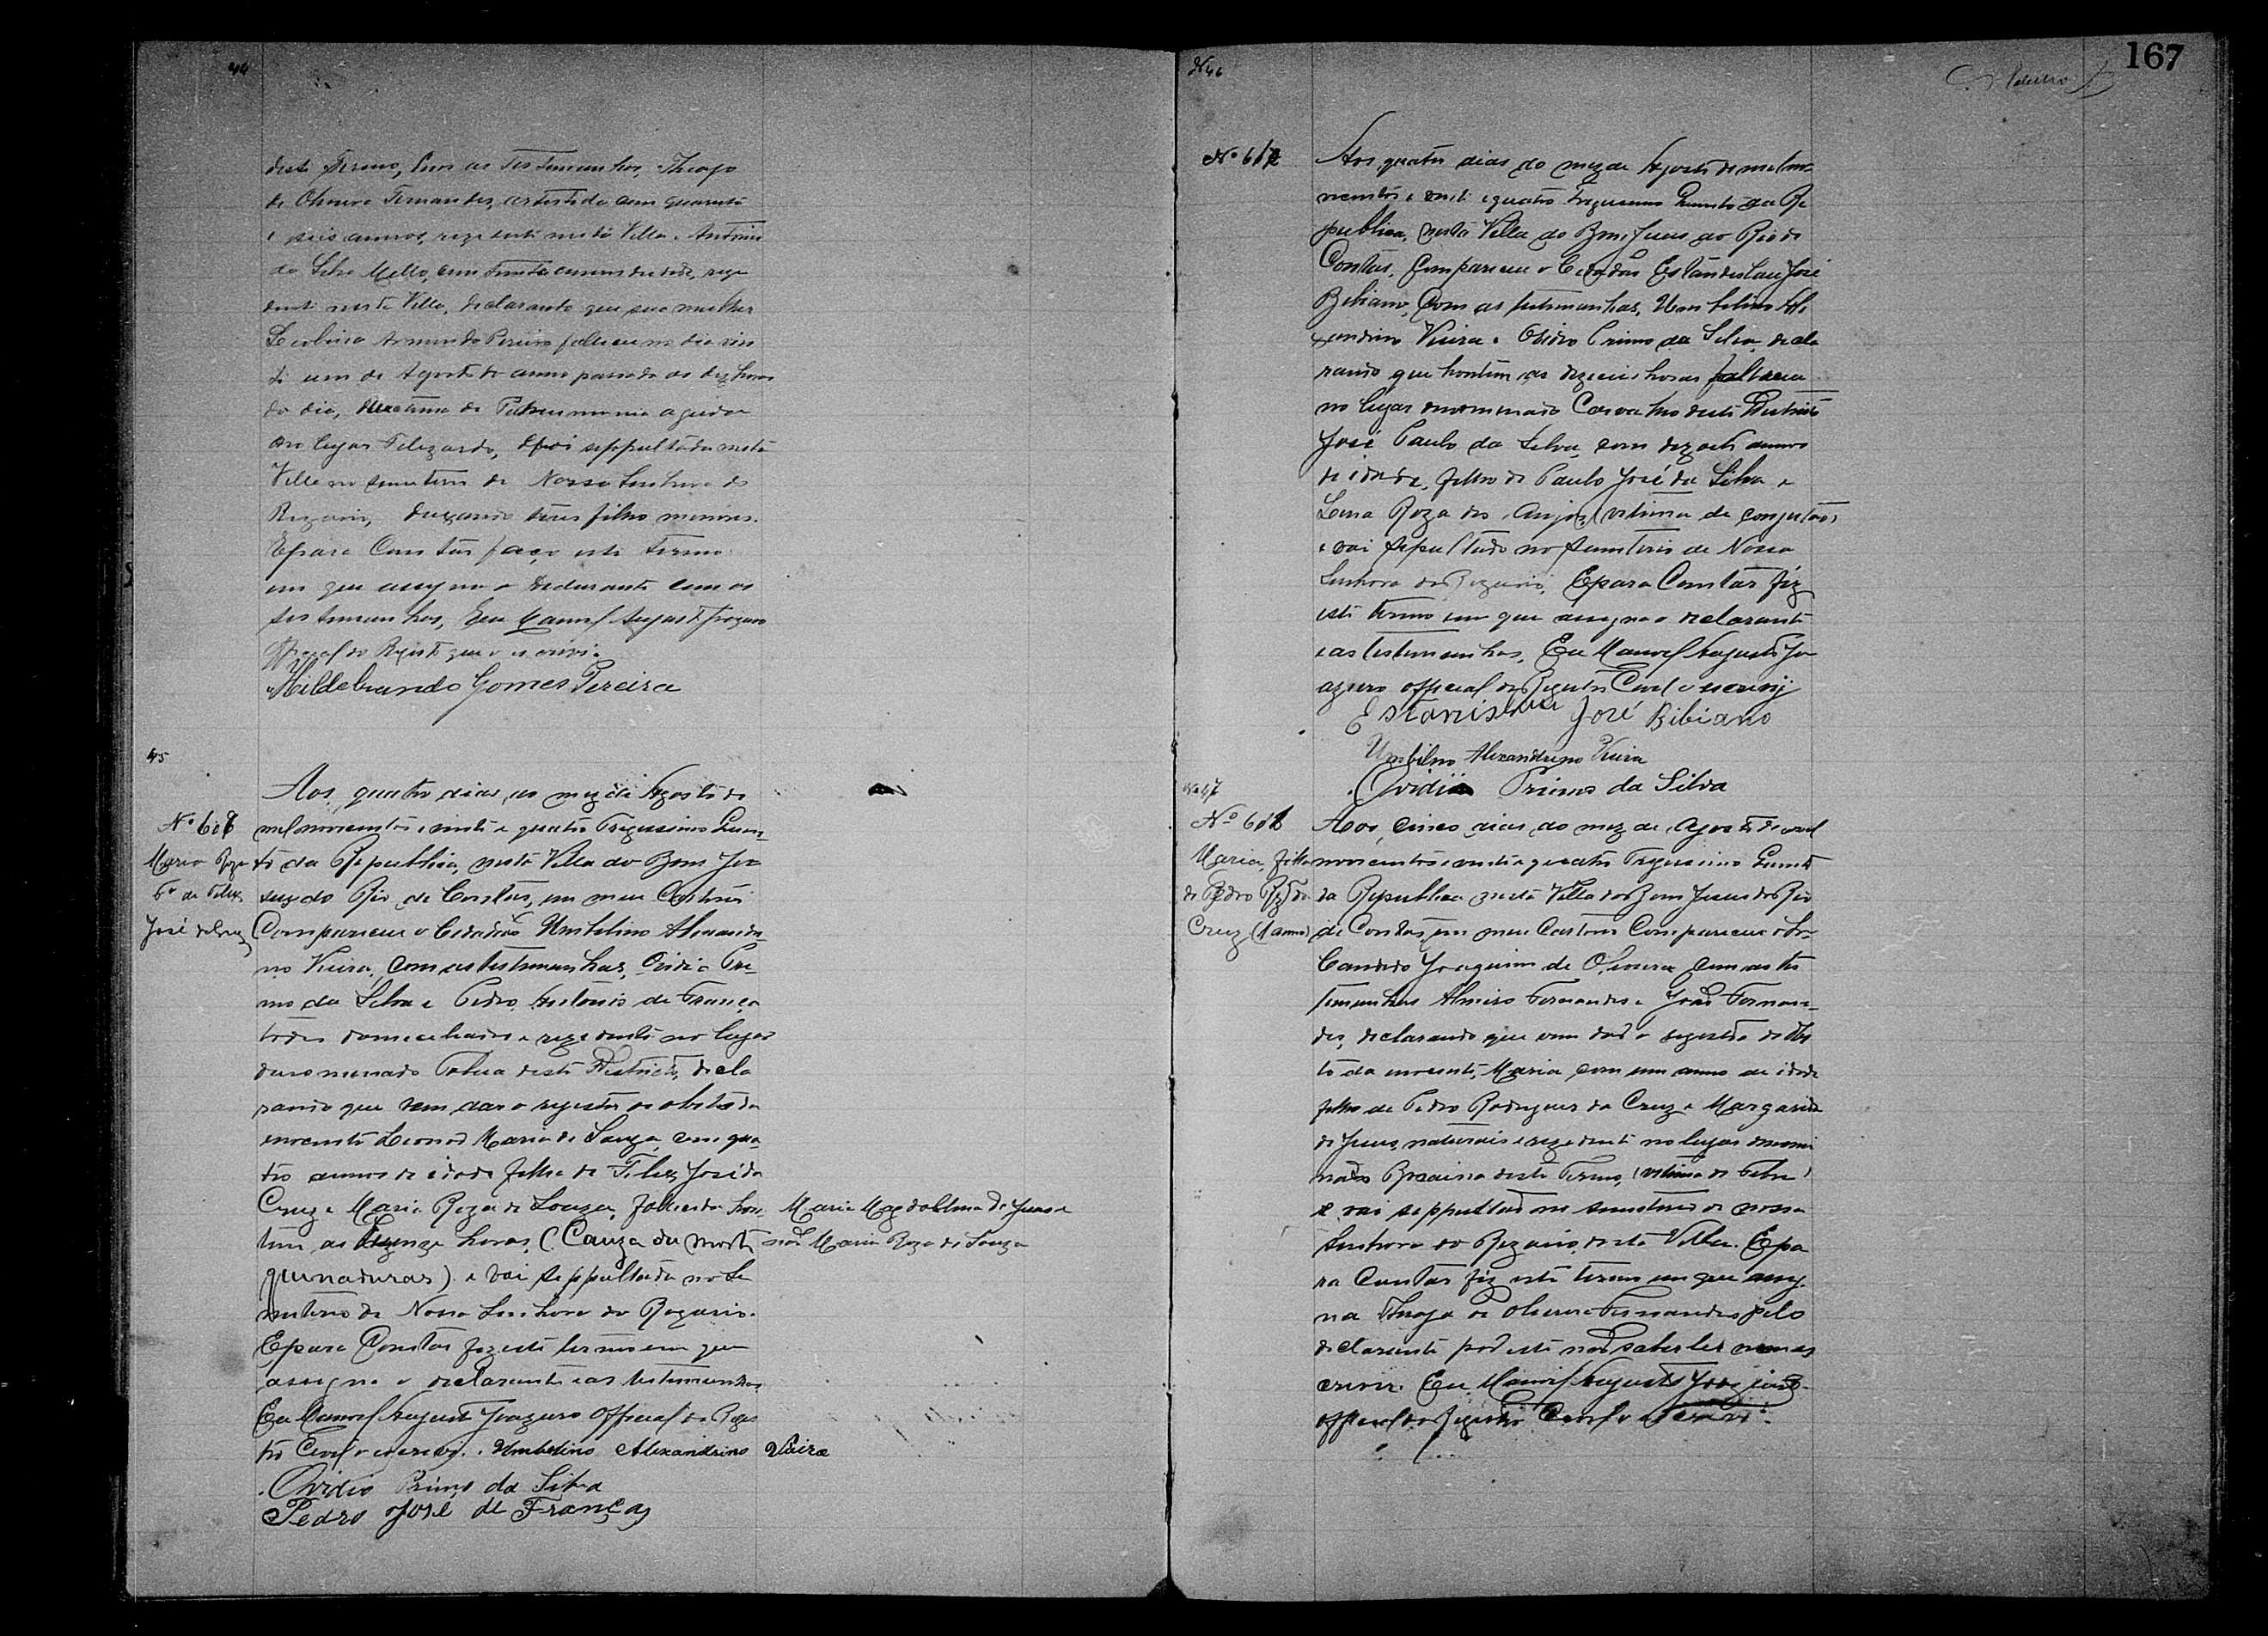 44
deste Termo, com as Testemunhas, Thiago
de Oliveira Fernandes, artista com quarenta
e seis annos, rezidente nesta Villa e Antonio
da Silva Mello, com trinta annos de idade, rezi
dente nesta Villa, declarando que sua mulher
Pereira falleceu no dia vin
te um de Agosto do anno passado as dez horas
do dia, de Pneumonia aguda
no lugar Felizardo, e foi seppultada nesta
Villa no semeterio de Nossa Senhora do
Rozario, deixando tres filho menores.
E para Constar faço este termo
em que assigna o declarante com as
testemunhas, Eu Manoel Augusto Joazeiro
official do Registo que o escrevi.
Hildebrando Gomes Pereira
45
Aos quatro dias do mez de Agosto de
Nº 608
mil novecentos e vinte e quatro Trigessimo Quin
Maria Roza
to da Republica, nesta Villa do Bom Je
fª de Felix
suz do Rio de Contas, em meu Cartorio
José da Cruz
Compareceu o Cidadão Umbelino Alexandri
no Vieira, com as testemunhas, Ovidio Pri
mo da Silva e Pedro Antonio de França
todos domeciliados e rezidente no lugar
denominado deste Districto, decla
rando que vem dar o registro de obito da
inocente Leonor Maria de Souza, com qua
tro annos de idade filha de Felix José da
Cruz e Maria Roza de Souza, fallecida hon
tem, as horas, (Cauza da morte
queimaduras) e vai seppultada no Se
miterio de Nossa Senhora do Rozario.
E para Constar fiz este termo em que
assigna o declarante e as testemunhas
Eu Manoel Augusto Joazeiro Official do Regis
tro Civil o escrevy. Umbelino Alexandrino Vieira
Ovidio Primo da Silva
Pedro José de França
Maria Magdallena de Jesus e
não Maria Roza de Souza
167
Nº 46
Nº 617
Aos quatro dias do mez de Agosto de mil no
vecentos e vinte e quatro Trigessimo Quinto da Re
publica, nesta Villa do Bom Jesus do Rio de
Contas, Compareceu o Cidadão Estandislau José
Bibiano, Com as testemunhas, Umbelino Ale
xandrino Vieira e Ovidio Primo da Silva, decla
rando que hontem as dezeseis horas falleceu
no lugar denominado deste Districto
José Paulo da Silva, com dezoito annos
de idade, filho de Paulo José da Silva e
Roza dos Anjos, (vitima de congestão)
e vai sepultado no semiterio de Nossa
Senhora do Rozario, E para Constar fiz
este termo em que assigna o declarante
e as testemunhas, Eu Manoel Augusto Jo
azeiro official do Registro Civil o escrevy
Estanislau José Bibiano
Umbelino Alexandrino Vieira
Ovidio Primo da Silva
Nº 47
Nº 618
Aos cinco dias do mez de Agosto de mil
Maria, filha
novecentos e vinte e quatro Trigessimo Quinto
de Pedro Rz da
da Republica nesta Villa do Bom Jesus do Rio
Cruz (1 anno)
de Contas, em meu Cartorio Compareceu o Sr.
Candido Joaquim de Oliveira com as tes
temunhas Almiro Fernandes e João Fernan
des, declarando que vem dar o registro de obi
to da inocente, Maria com um anno de idade
filha de Pedro Rodrigues da Cruz e Margarida
de Jesus, naturais e rezidente no lugar denomi
nado deste Termo, (vitima de Febre)
e vai seppultado no semiterio de nossa
Senhora do Rozario desta Villa. E pa
ra Constar fiz este termo em que assig
na Thiago de Oliveira Fernandes pelo
declarante por este não saber ler nem es
crever. Eu Manoel Augusto Joazeiro
official do Registro Civil o escrevi.